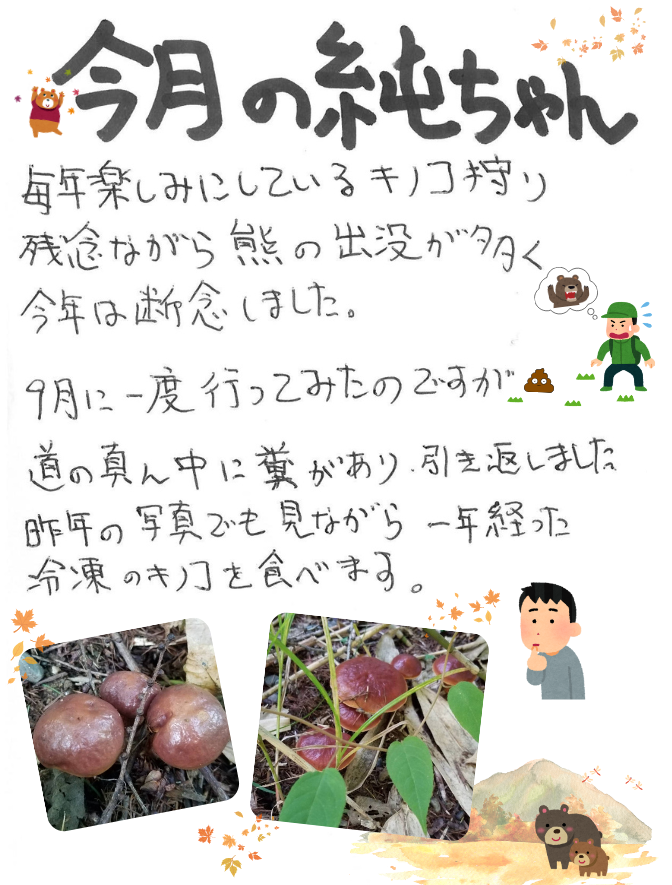 今月の純ちゃん
毎年楽しみにしているキノコ狩り
残念ながら熊の出没が多く
今年は断念しました。
9月に一度行ってみたのですが
道の真ん中に糞があり、引き返しました
昨年の写真でも見ながら 一年経った
冷凍のキノコを食べます。